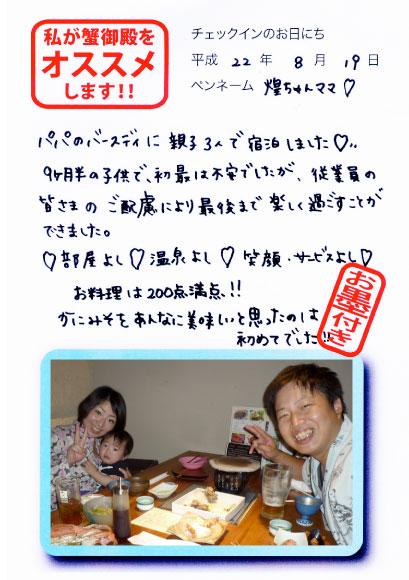 私が蟹御殿を
オススメ
します!!
チェックインのお日にち
平成 22 年 8 月 19 日
ペンネーム 煌ちゃんママ♡
パパのバースデイに 親子3人で宿泊しました♡..
9ヶ月半の子供で、初最は不安でしたが、従業員の
皆さまのご配慮により最後まで楽しく過ごすことが
できました。
♡部屋よし♡温泉よし♡笑顔・サービスよし♡
お料理は200点満点!!
かにみそをあんなに美味しいと思ったのは
初めてでした!!
お墨付き